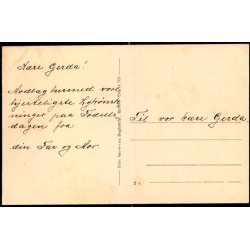 Kære Gerda!
Modtag hermed vore
hjerteligste Lykønsk-
ninger paa Fødsels-
dagen fra
din Far og Mor.
Til vor kære Gerda